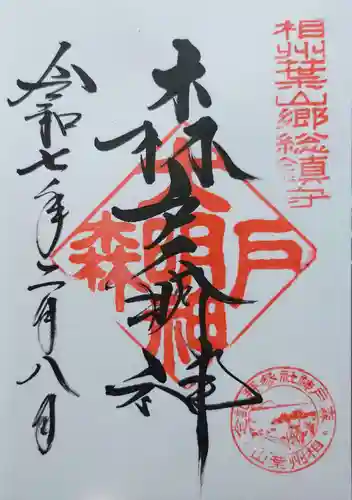 相州葉山郷総鎮守
森戸大明神
大明神
森戸
令和七年二月八日
相州葉山